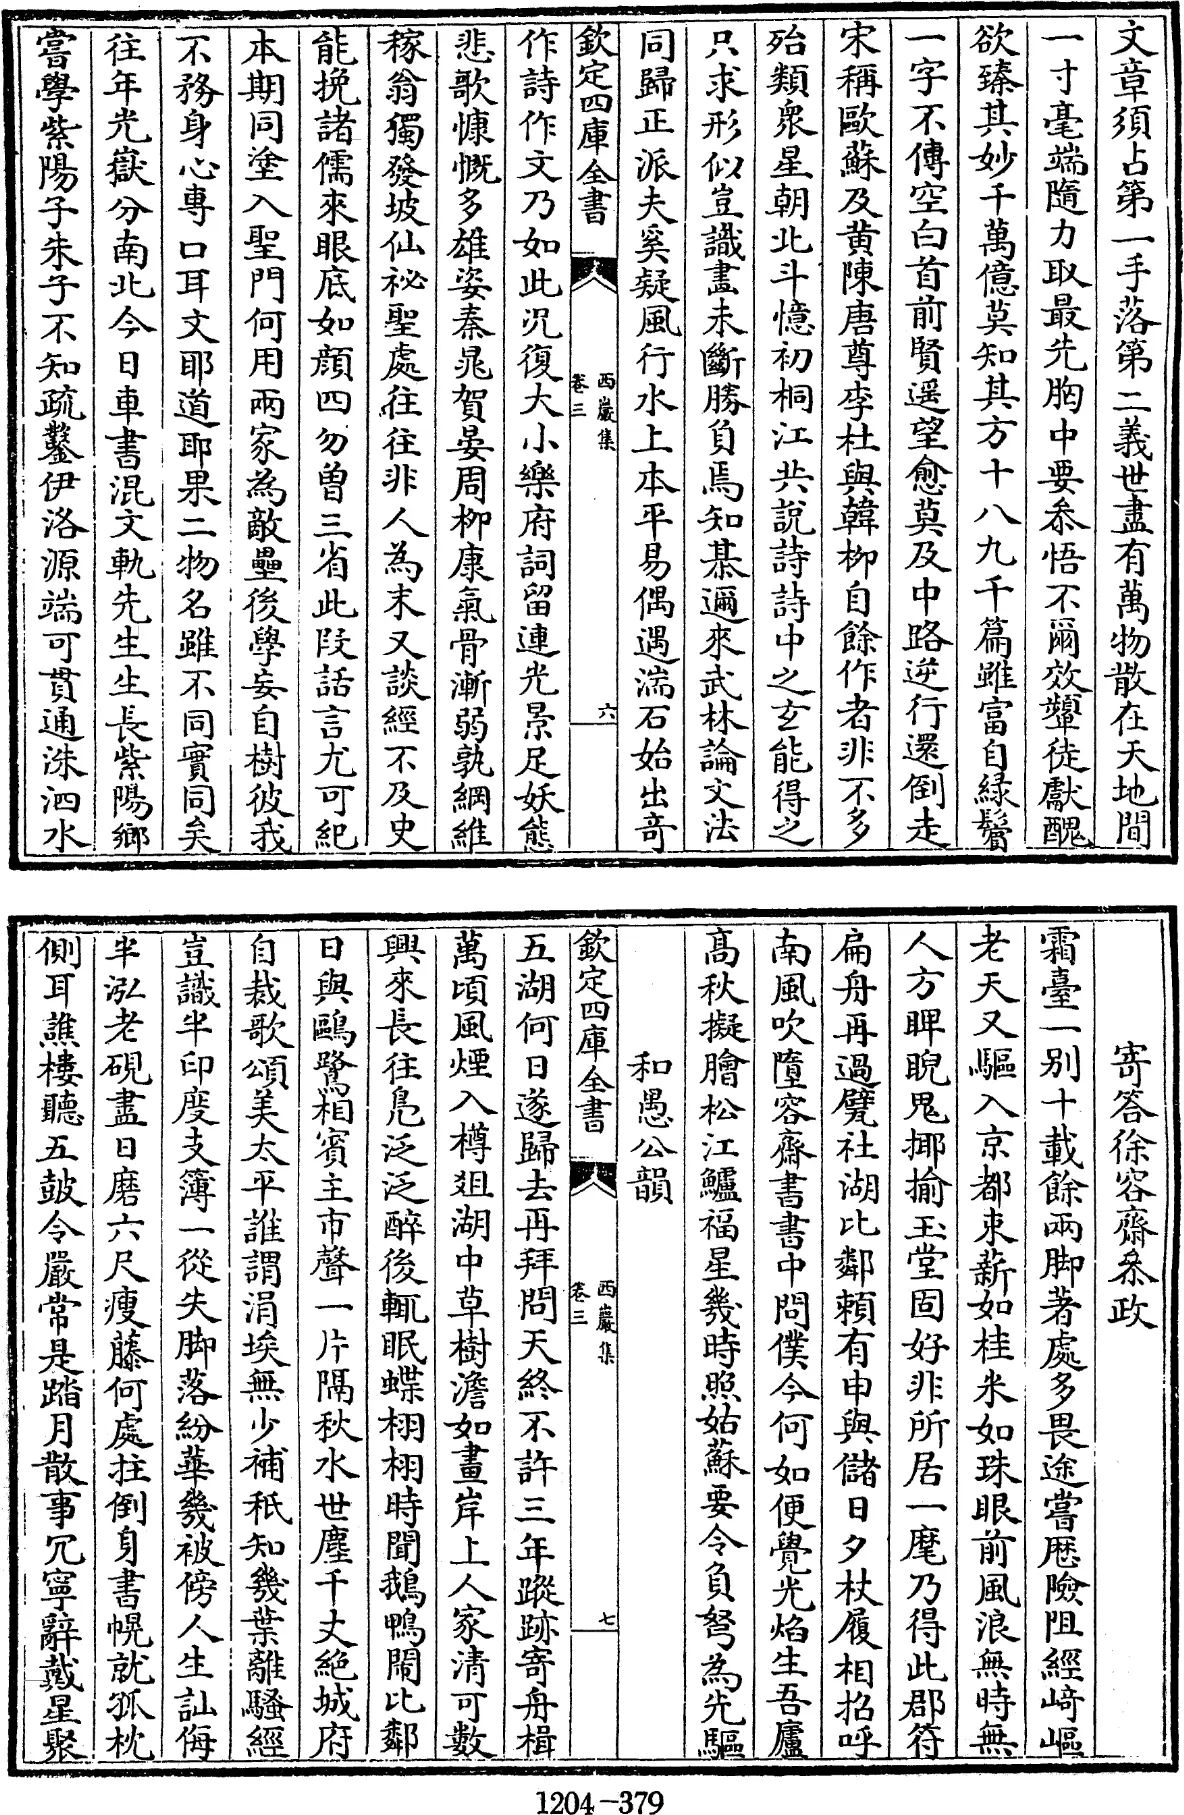 文章須占第一手落第二義世盡有萬物散在天地間
一寸毫端隨力取最先胸中要叅悟不爾效顰徒獻醜
欲臻其妙千萬億莫知其方十八九千篇雖富自緑鬢
一字不傳空白首前賢遥望愈莫及中路逆行還倒走
宋稱歐蘇及黄陳唐尊李杜與韓栁自餘作者非不多
殆類衆星朝北斗憶初桐江共説詩詩中之玄能得之
只求形似豈識畫未斷勝負焉知棊邇來武林論文法
同歸正派夫奚疑風行水上本平易偶遇湍石始出奇
欽定四庫全書
西巖集
卷三
六
作詩作文乃如此况復大小樂府詞留連光景足妖態
悲歌慷慨多雄姿秦晁賀晏周栁康氣骨漸弱孰綱維
稼翁獨發坡仙祕聖處往往非人為末又談經不及史
能挽諸儒來眼底如顔四勿曽三省此段話言尤可紀
本期同塗入聖門何用兩家為敵壘後學妄自樹彼我
不務身心專口耳文耶道耶果二物名雖不同實同矣
往年光嶽分南北今日車書混文軌先生生長紫陽鄉
嘗學紫陽子朱子不知疏鑿伊洛源端可貫通洙泗水
寄答徐容齋叅政
霜臺一别十載餘兩脚著處多畏途嘗歴險阻經﨑嶇
老天又驅入京都束薪如桂米如珠眼前風浪無時無
人方睥睨鬼揶揄玉堂固好非所居一麾乃得此郡符
扁舟再過甓社湖比鄰頼有申與儲日夕杖履相招呼
南風吹墮容齋書書中問僕今何如便覺光焰生吾廬
髙秋擬膾松江鱸福星幾時照姑蘇要令負弩為先驅
和愚公韻
欽定四庫全書
西巖集
卷三
七
五湖何日遂歸去再拜問天終不許三年蹤跡寄舟楫
萬頃風煙入樽爼湖中草樹澹如畫岸上人家清可數
興來長往鳬泛泛醉後輒眠蝶栩栩時聞鵝鴨閙比鄰
日與鷗鷺相賓主市聲一片隔秋水世塵千丈絶城府
自裁歌頌美太平誰謂涓埃無少補秖知幾葉離騷經
豈識半印度支簿一從失脚落紛華幾被傍人生訕侮
半泓老硯盡日磨六尺瘦藤何處拄倒身書幌就孤枕
側耳譙樓聽五鼓令嚴常是踏月散事冗寧辭戴星聚
1204-379